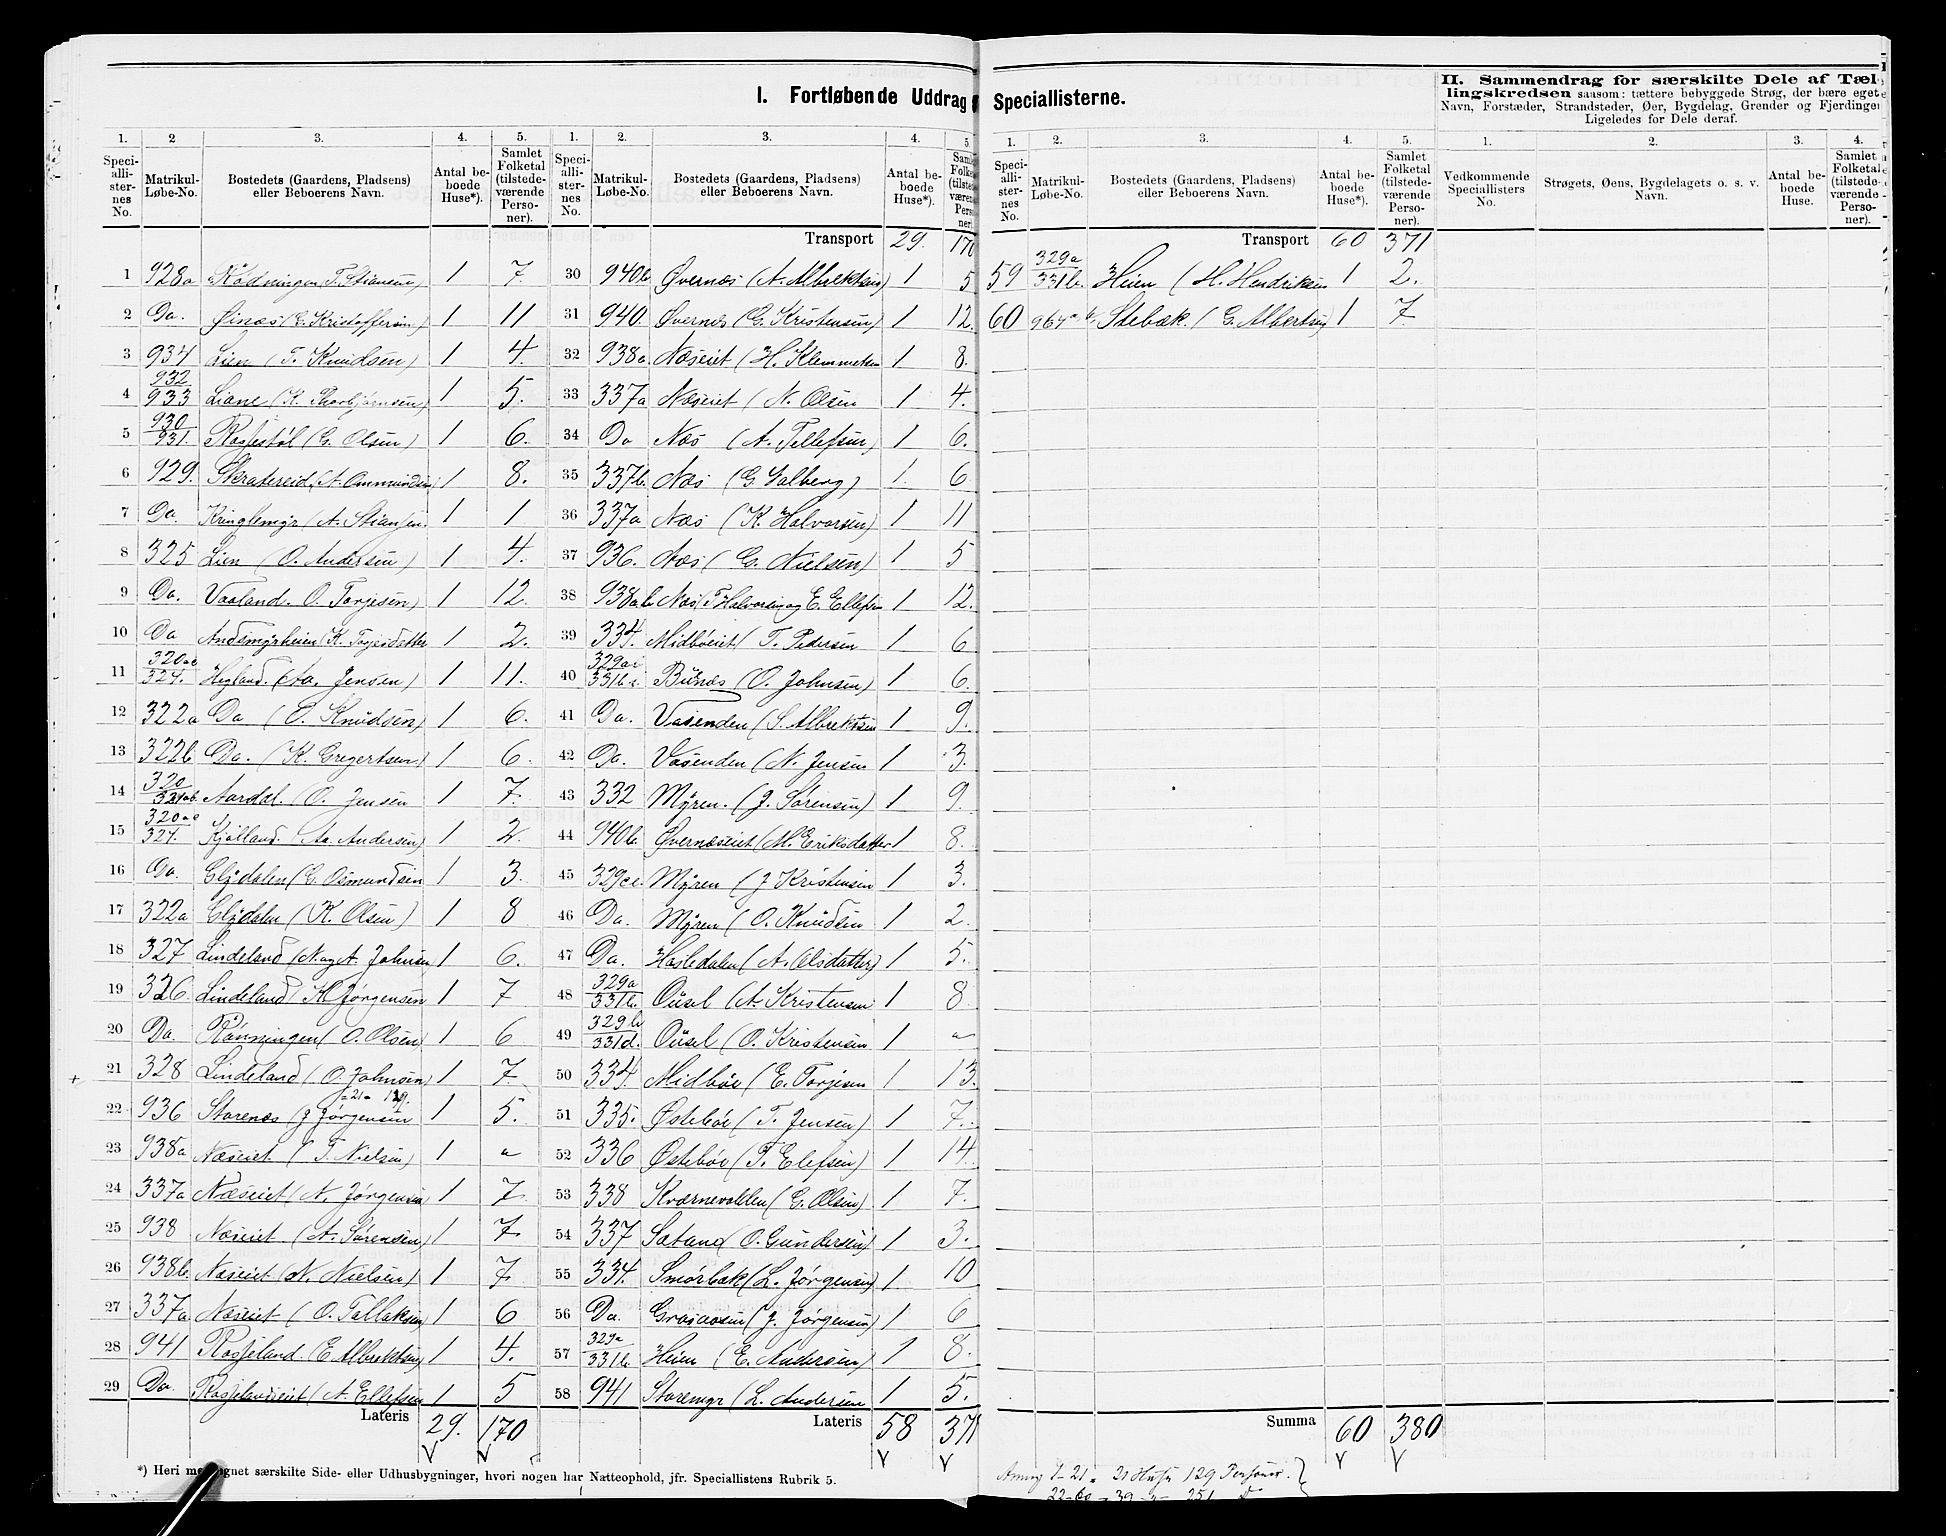 I. Fortløbende Uddrag
Speciallisterne.
II. Sammendrag for særskilte Dele af Tæl-
lingskredsen saasom: tættere bebyggede Strøg, der bære eget
Navn, Forstæder, Strandsteder, Øer, Bygdelag, Grender og Fjerdinger
Ligeledes for Dele deraf.
1. 2 3. 4. 5.
Speci-alli-ster-nes No. Matrikul-Løbe-No. Bostedets (Gaardens, Pladsens) eller Beboerens Navn. Antal be-boede Huse*). Samlet Folketal (tilstede-værende Perso-ner).
1 928a Rødningen T. Stiansen 1 7.
2 Do. Øinæs (E. Kristoffersen) 1 11
3 934 Lien (T. Knudsen) 1 4.
4 932/933 Liane (K. Thorbjørnsen) 1 5.
5 930/931. Rosjestøl (G. Olsen) 1 6.
6 929. Skratereid (A. Ommundsen) 1 8.
7 Do. Kringlemyr (A. Stiansen 1 1
8 325 Lien (O. Andersen) 1 4.
9 Do. Vasland. O. Torjesen) 1 12.
10 Do Andsmyrheien (K. Torjesdatter 1 2.
11 320ac/324. Hegland. (Aa. Jensen) 1 11.
12 322a Do (O. Knudsen) 1 6.
13 322b Do. (K. Gregertsen) 1 6.
14 320/321ab. Aardal. (O. Jensen 1 7.
15 320ae/324. Kjølland. (Aa. Andersen) 1 2.
16 Do. Elgdalen (G. Osmundsen 1 3.
17 322a Elgdalen (K. Olsen) 1 8
18 327 Lindeland (N. og A. Johnsen 1 6.
19 326. Lindeland K. Jørgensen 1 7
20 Do. Rønningen (O. Olsen) 1 6
21 328 Lindeland (O. Johnsen) 1 7
= 21 = 129.
22 936 Storenes (J Jørgensen 1 5.
23 938a Næseiet (T. Nielsen) 1 "
24 337a Næseiet (N. Jørgensen 1 7
25 938 Næseiet (A. Sørensen) 1 7
26 938b. Næseiet (N. Nielsen) 1 7.
27 337a Næseiet (O. Tallaksen) 1 6
28 941 Rosjeland (E Albrektsen) 1 4.
29 Do. Rosjelandseiet (A. Ellefsen 1 5
Lateris 29. 170
1. 2. 3. 4. 5.
Speci-alli-ster-nes No. Matrikul-Løbe-No. Bostedets (Gaardens, Pladsens) eller Beboerens Navn. Antal be-boede Huse*).
Transport 29. 170
30 940b Øvernæs (A. Albrektsen) 1 5
31 940. Øvernes (G. Kristensen) 1 12.
32 938a. Næseiet (H. Klemmetsen 1 8.
33 337a Næseiet (N. Olsen 1 4.
34 Do Næs (A. Tellefsen) 1 6.
35 337b. Næs (G. Salberg) 1. 6
36 337a Næs (K. Halvorsen) 1 11
37 936. Næs (G. Nielsen) 1 5
38 938ab Næs (T Halvorsen og E. Ellefsen 1 12.
39 334. Midbøeiet (T. Pedersen 1 6
40 Bunæs (O. Johnsen) 1 6.
41 Do. Vasenden (S. Albrektsen 1 9.
42 Do. Vasenden (N. Jensen 1 3.
43 332 Myren. (J. Sørensen) 1 9.
44 940b. Øvernæseiet (M. Eriksdatter 1 8.
45 329cc. Myren (J Kristensen 1 3.
46 Do. Myren (O. Knudsen 1 2
47 Do. Hasledalen (A. Olsdatter) 1 5.
48 329a/331b. Ousel (A. Kristensen 1 8.
49 329b/331d. Ousel (O. Kristensen 1 "
50 334. Midbøe (E. Torjesen 1 13.
51 335. Østebøe (T. Jensen) 1 7.
52 336 Østebøe (T. Elefsen) 1 14.
53 338 Kvarnevolden (G. Olsen) 1 7.
54 337 Satand (O. Gundersen) 1 3.
55 334. Smørbæk (L. Jørgensen) 1. 10
56 Do. Grasaasen (J. Jørgensen) 1 6
57 329a/331b. Heien (E. Andersen) 1 8.
58 941 Storemyr (L. Andersen 1 5.
Lateris 58 371
*) Heri medregnet særskilte Side- eller Udhusbygninger, hvori nogen har Natteophold, jfr. Speciallistens Rubrik 5.
1. 2. 3. 4. 5.
Speci-alli-ster-nes No. Matrikul-Løbe-No. Bostedets (Gaardens, Pladsens) eller Beboerens Navn. Antal be-boede Huse*). Samlet Folketal (tilstede-værende Perso-ner).
Transport 60 371
59 329a/331b. Heien (H. Hendriksen 1 2.
60 Stebæk. (G. Albertsen 1 7.
Summa 60 380
1-21 = 21 Huse 129 Personer.
22-60 = 39 251
1. 2. 3. 4.
Vedkommende Speciallisters No. Strøgets, Øens, Bygdelagets o. s. v. Navn. Antal be-boede Huse. Samlet Folketal (tilstede-værende Perso-ner).